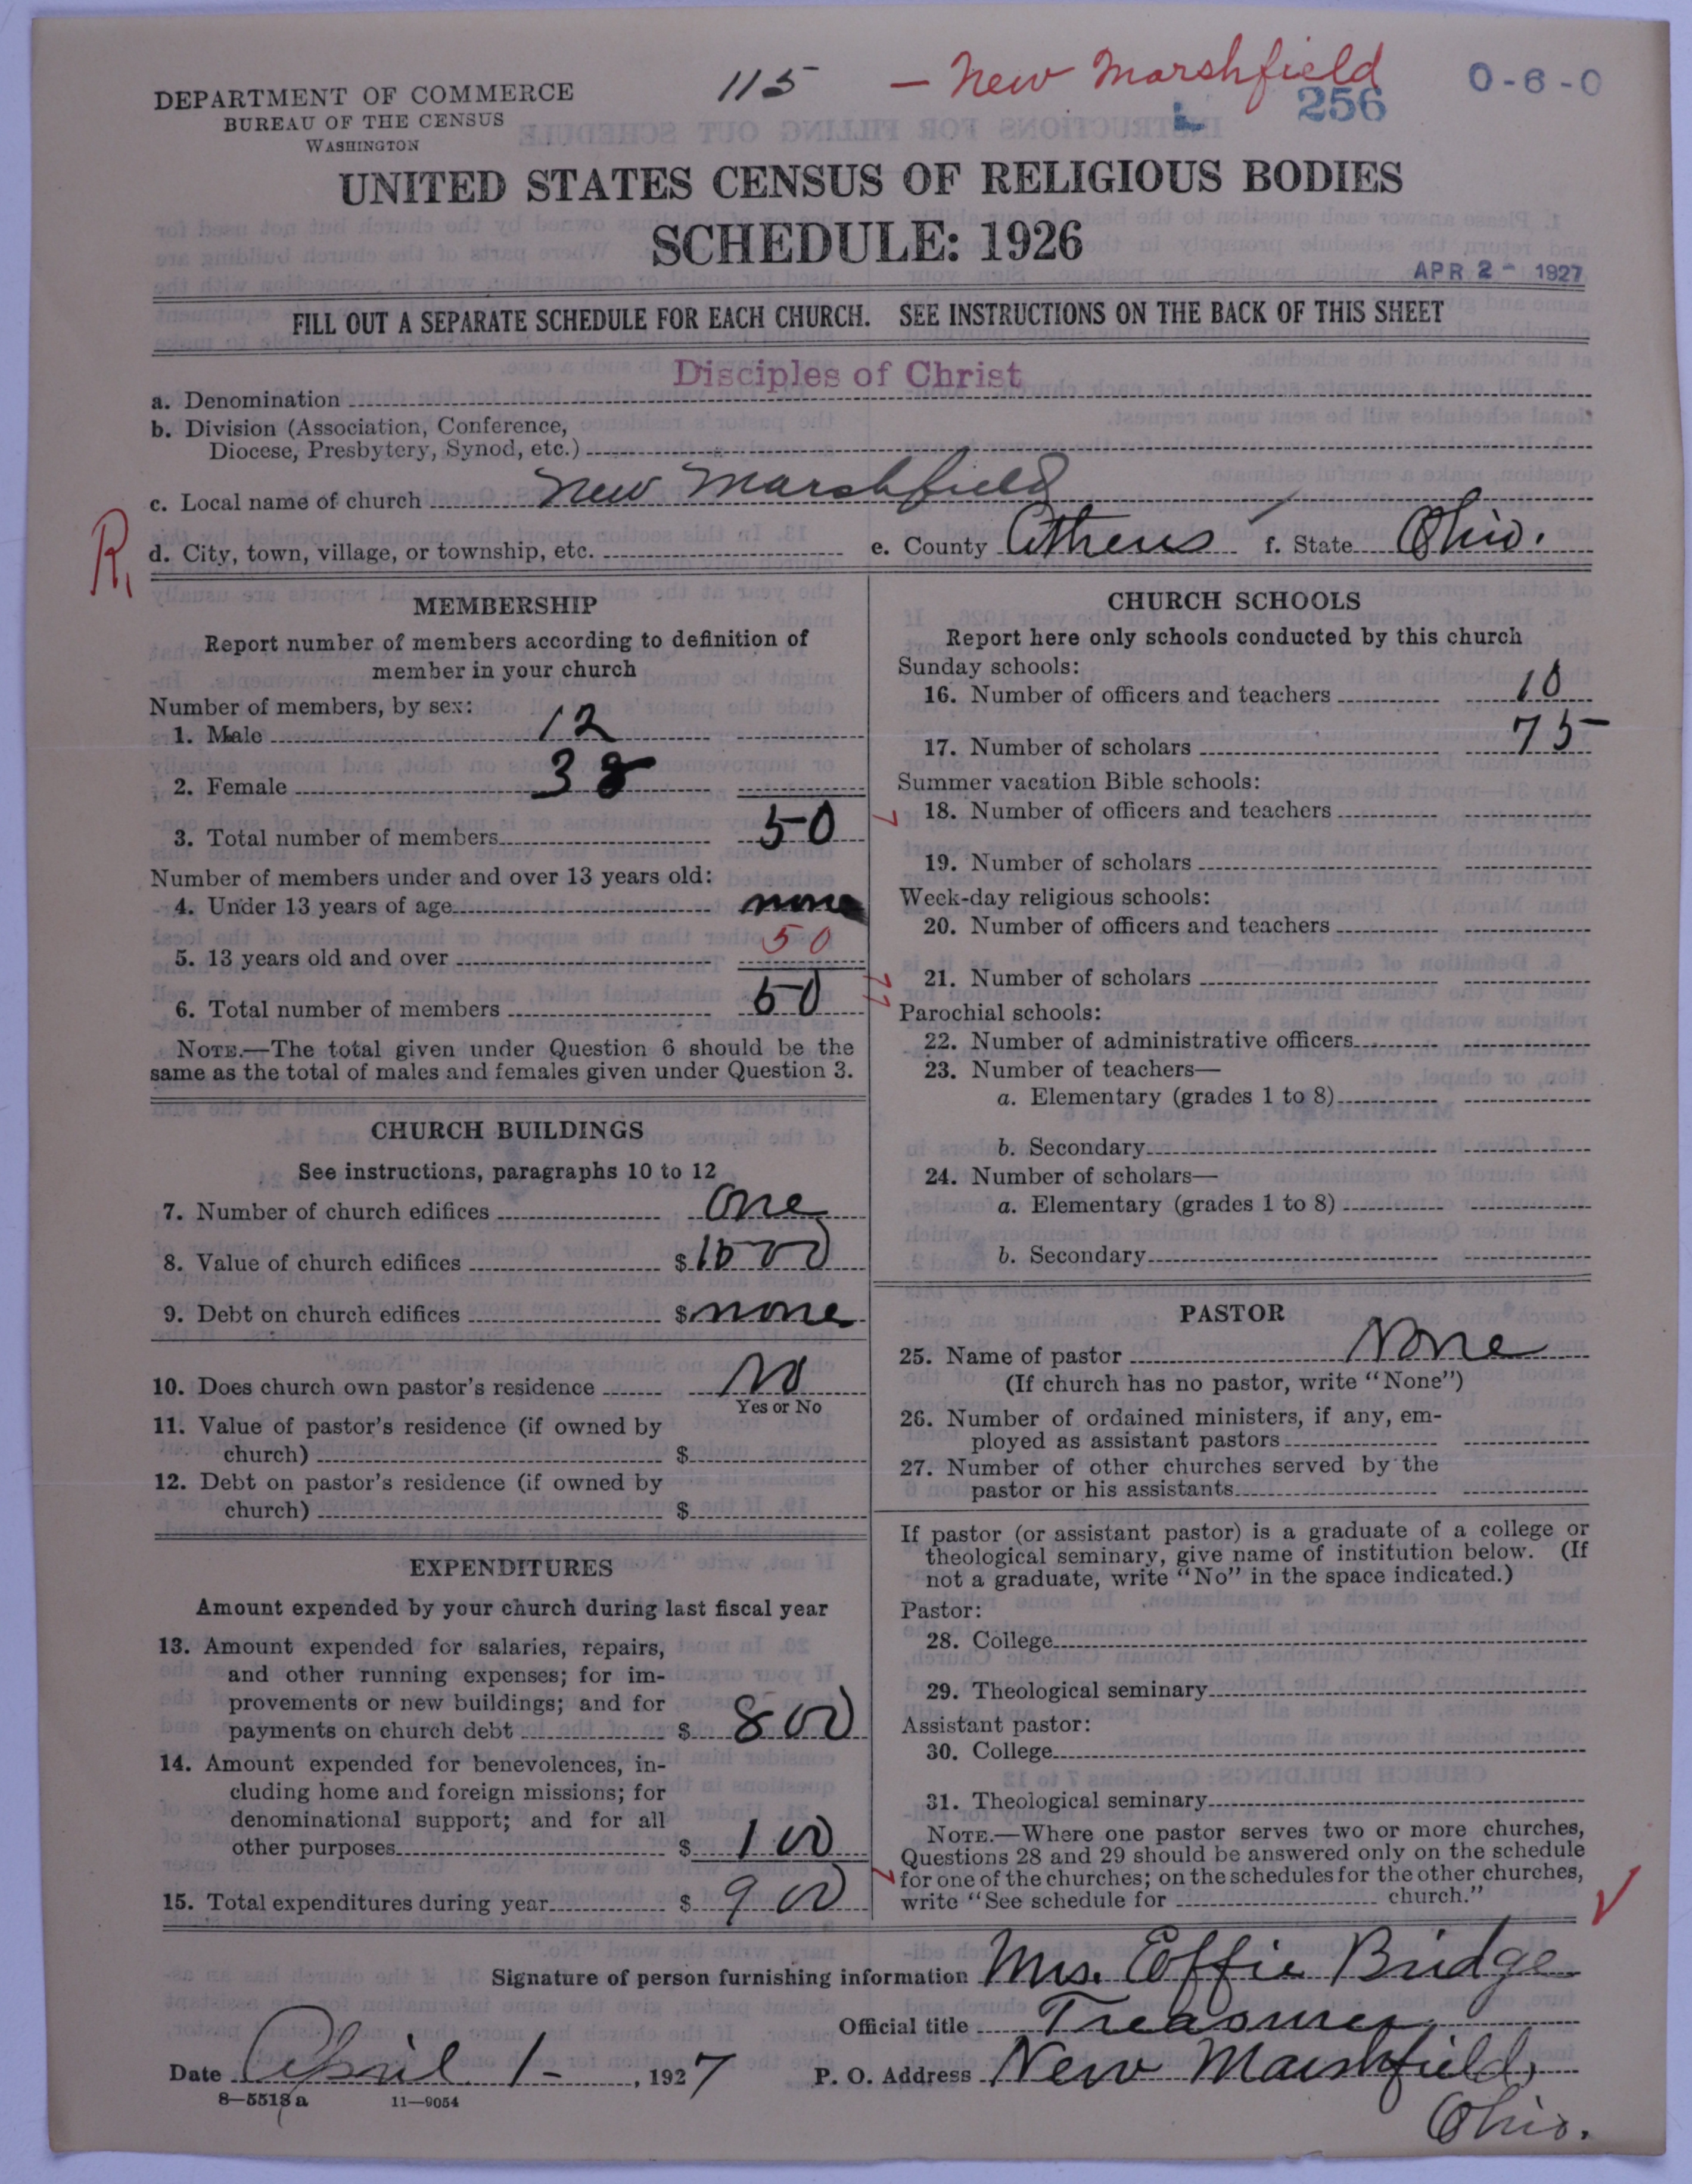 115 — New Marshfield
DEPARTMENT OF COMMERCE
BUREAU OF THE CENSUS
WASHINGTON
L 256 0-6-0
UNITED STATES CENSUS OF RELIGIOUS BODIES
SCHEDULE: 1926
APR 2 - 1927
FILL OUT A SEPARATE SCHEDULE FOR EACH CHURCH. SEE INSTRUCTIONS ON THE BACK OF THIS SHEET
Disciples of Christ
a. Denomination
b. Division (Association, Conference,
Diocese, Presbytery, Synod, etc.)
c. Local name of church New Marshfield
R,
d. City, town, village, or township, etc. e. County Athens f. State Ohio.
MEMBERSHIP
Report number of members according to definition of
member in your church
Number of members, by sex:
1. Male 12
2. Female 38
3. Total number of members 50
Number of members under and over 13 years old:
4. Under 13 years of age none
5. 13 years old and over 50
6. Total number of members 50
NOTE.—The total given under Question 6 should be the
same as the total of males and females given under Question 3.
CHURCH BUILDINGS
See instructions, paragraphs 10 to 12
7. Number of church edifices One
8. Value of church edifices $1500
9. Debt on church edifices $none
10. Does church own pastor's residence No
Yes or No
11. Value of pastor's residence (if owned by
church) $
12. Debt on pastor's residence (if owned by
church) $
EXPENDITURES
Amount expended by your church during last fiscal year
13. Amount expended for salaries, repairs,
and other running expenses; for im-
provements or new buildings; and for
payments on church debt $ 800
14. Amount expended for benevolences, in-
cluding home and foreign missions; for
denominational support; and for all
other purposes $ 100
15. Total expenditures during year $ 900
CHURCH SCHOOLS
Report here only schools conducted by this church
Sunday schools:
16. Number of officers and teachers 10
17. Number of scholars 75
Summer vacation Bible schools:
18. Number of officers and teachers
19. Number of scholars
Week-day religious schools:
20. Number of officers and teachers
21. Number of scholars
Parochial schools:
22. Number of administrative officers
23. Number of teachers—
a. Elementary (grades 1 to 8)
b. Secondary
24. Number of scholars—
a. Elementary (grades 1 to 8)
b. Secondary
PASTOR
25. Name of pastor None
(If church has no pastor, write "None")
26. Number of ordained ministers, if any, em-
ployed as assistant pastors
27. Number of other churches served by the
pastor or his assistants
If pastor (or assistant pastor) is a graduate of a college or
theological seminary, give name of institution below. (If
not a graduate, write "No" in the space indicated.)
Pastor:
28. College
29. Theological seminary
Assistant pastor:
30. College
31. Theological seminary
NOTE.—Where one pastor serves two or more churches,
Questions 28 and 29 should be answered only on the schedule
for one of the churches; on the schedules for the other churches,
write "See schedule for church."
Signature of person furnishing information Mrs. Effie Bridge
Official title Treasurer
Date April 1-, 1927 P. O. Address New Marshfield,
Ohio.
8—5518 a 11—9054